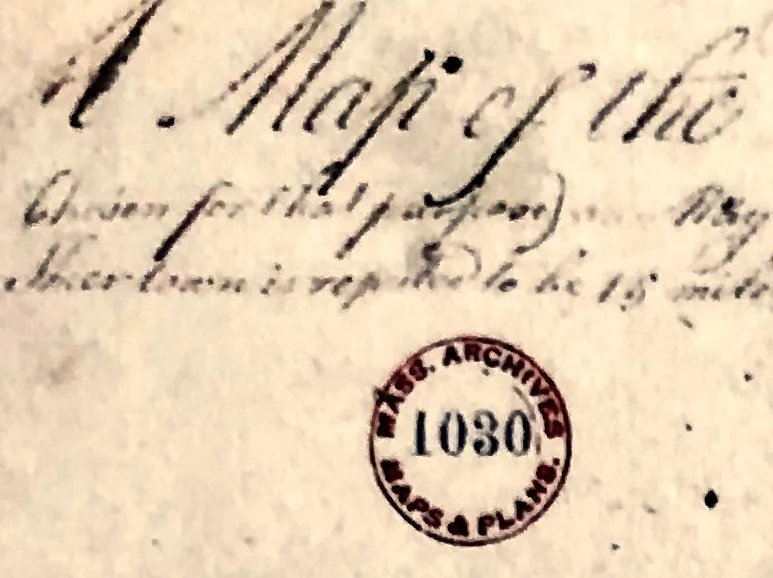 A Map of the
Chosen for that purpose)
town is reputed to be 15 mile
MASS. ARCHIVES
1030
MAPS & PLANS.